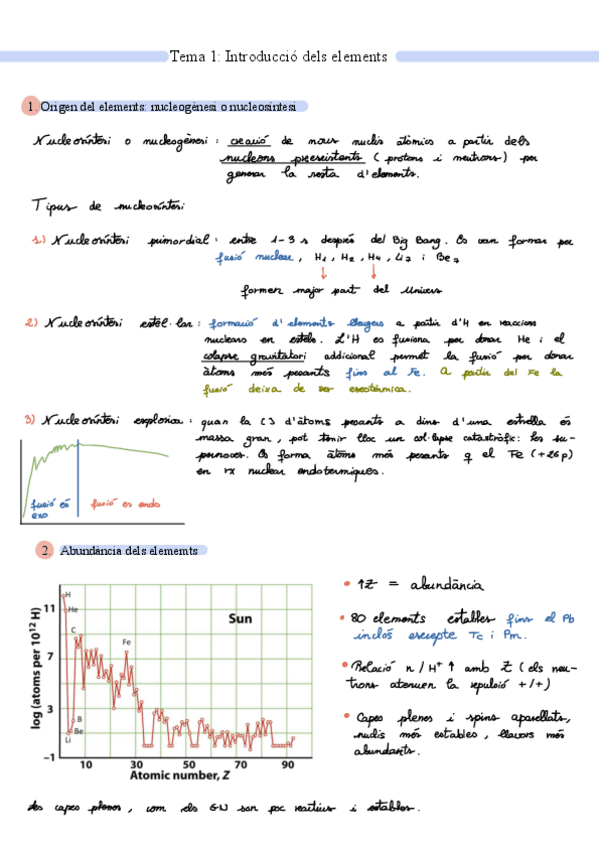 Tema 1: Introducció dels elements
1. Origen del elements: nucleogènesi o nucleosíntesi
Nucleosíntesi o nucleogènesi : creació de nous nuclis atòmics a partir dels
nucleons preexistents ( protons i neutrons ) per
generar la resta d'elements.
Tipus de nucleosíntesi
1) Nucleosíntesi primordial : entre 1-3 s després del Big Bang. Es van formar per
fusió nuclear, H1, H2, H4, Li7 i Be7
↓ ↓
formen major part del Univers
2) Nucleosíntesi estel·lar : formació d'elements lleugers a partir d'H en reaccions
nuclears en estels. L'H es fusiona per donar He i el
colapse gravitatori addicional permet la fusió per donar
àtoms més pesants fins al Fe. A partir del Fe la
fusió deixa de ser exotèrmica.
3) Nucleosíntesi explosiva : quan la C3 d'àtoms pesants a dins d'una estrella és
massa gran, pot tenir lloc un col·lapse catastròfic: les su-
pernoves. Es forma àtoms més pesants q el Fe (+26p)
en rx nuclear endotermiques.
fusió és
exo
fusió es endo
2. Abundància dels elememts
↑Z = abundància
80 elements estables fins el Pb
inclós excepte Tc i Pm.
Relació n/H+ ↑ amb Z ( els neu-
trons atenuen la repulsió +/+)
Capes plenes i spins aparellats,
nuclis més estables, llavors més
abundants.
log (atoms per 10¹² H)
11
7
3
−1
H
He
C
Fe
B
Be
Li
Sun
10 30 50 70 90
Atomic number, Z
les capes plenes, com els GN son poc reactius i estables.